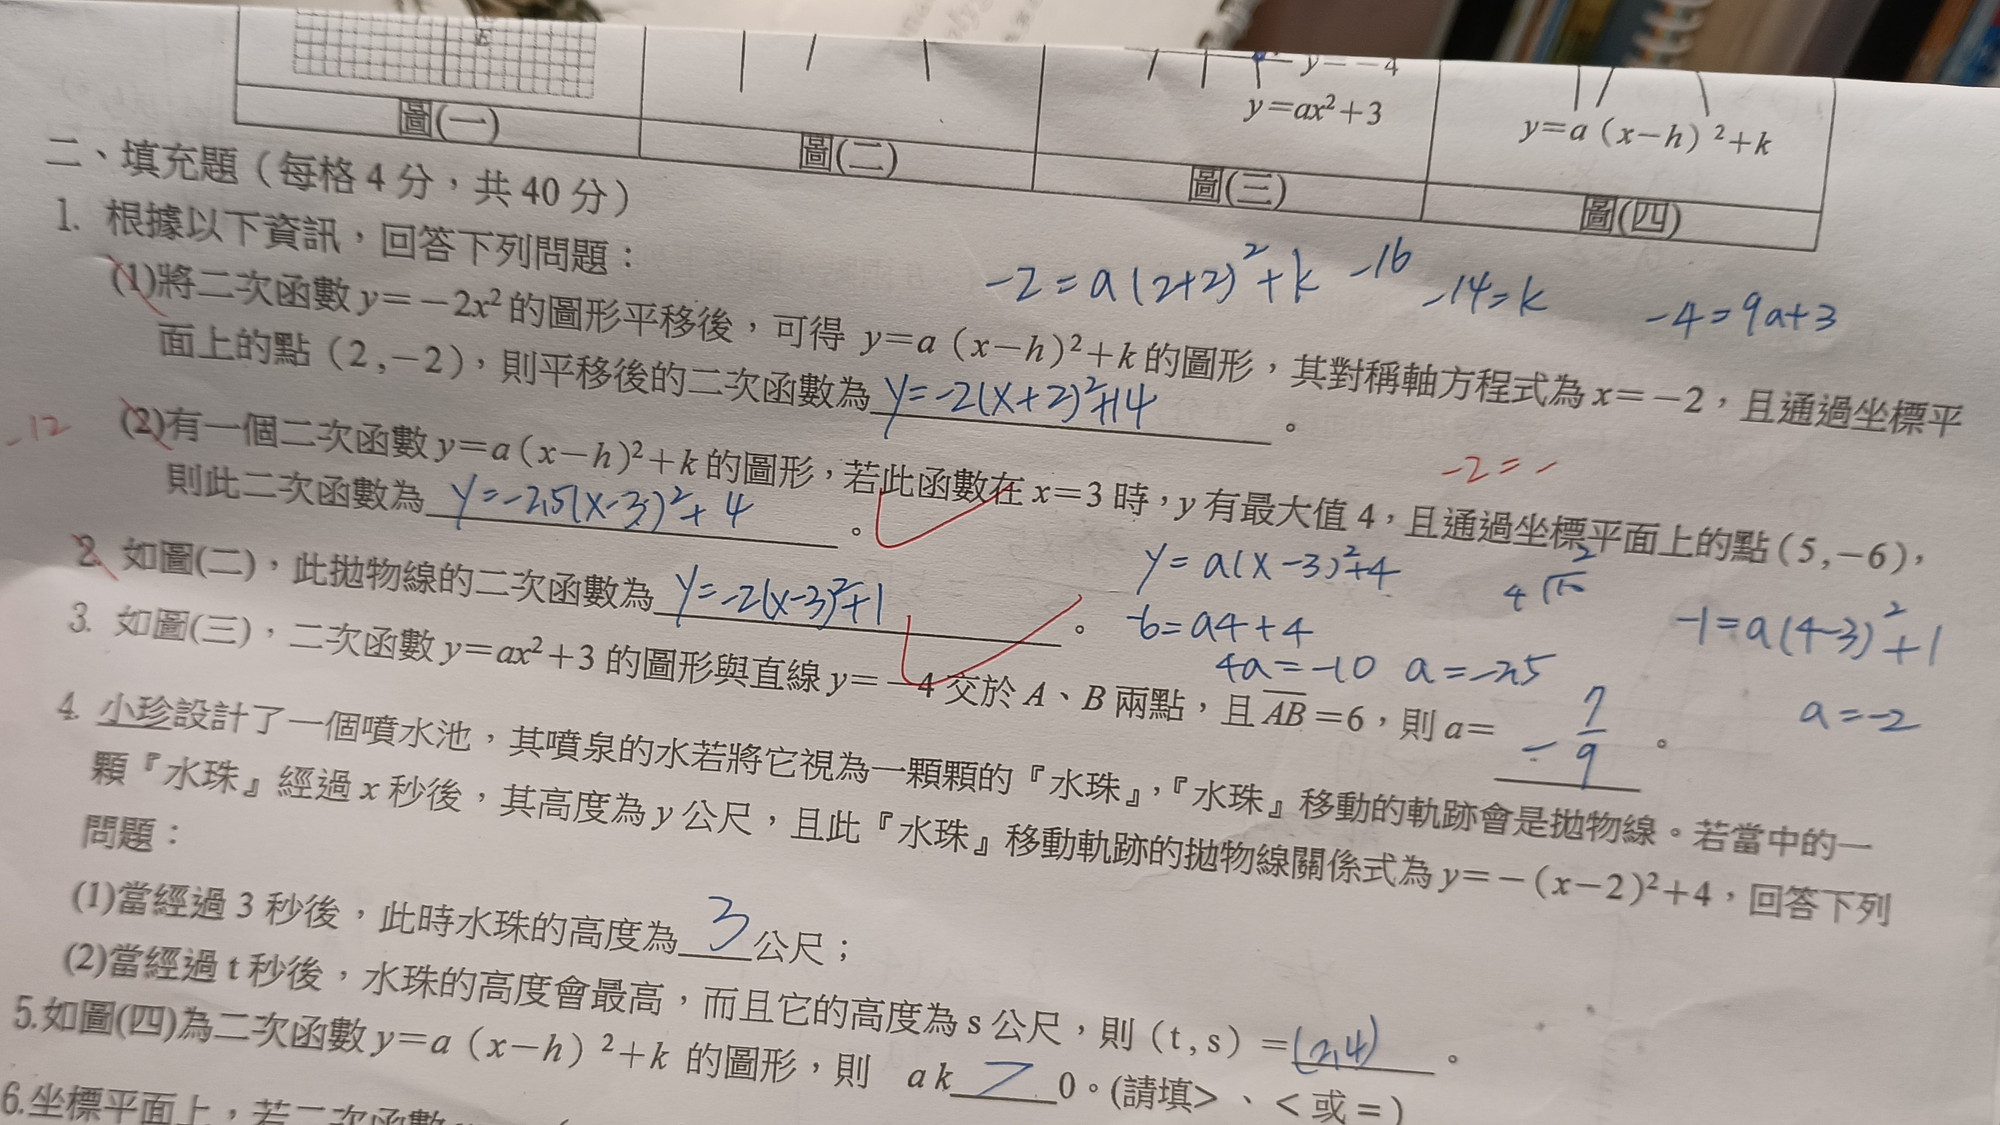 y=-4
y=ax²+3
y=a（x-h）²+k
圖(一)
圖(二)
圖(三)
圖(四)
二、填充題（每格 4 分，共 40 分）
1. 根據以下資訊，回答下列問題：
-2=a(2+2)²+k -16 -14=k -4=9a+3
(1)將二次函數 y=-2x² 的圖形平移後，可得 y=a（x-h)²+k 的圖形，其對稱軸方程式為 x=-2，且通過坐標平
面上的點（2,-2)，則平移後的二次函數為 y=-2(x+2)²+14 。
-12
-2=-
(2)有一個二次函數 y=a(x-h)²+k 的圖形，若此函數在 x=3 時，y 有最大值 4，且通過坐標平面上的點(5,-6)，
則此二次函數為 y=-2.5(x-3)²+4 。
y=a(x-3)²+4
-6=a4+4
4a=-10 a=-2.5
-1=a(4-3)²+1
a=-2
2. 如圖(二)，此拋物線的二次函數為 y=-2(x-3)²+1 。
3. 如圖(三)，二次函數 y=ax²+3 的圖形與直線 y=-4 交於 A、B 兩點，且 AB=6，則 a= -7/9 。
4. 小珍設計了一個噴水池，其噴泉的水若將它視為一顆顆的『水珠』，『水珠』移動的軌跡會是拋物線。若當中的一
顆『水珠』經過 x 秒後，其高度為 y 公尺，且此『水珠』移動軌跡的拋物線關係式為 y=-(x-2)²+4，回答下列
問題：
(1)當經過 3 秒後，此時水珠的高度為 3 公尺；
(2)當經過 t 秒後，水珠的高度會最高，而且它的高度為 s 公尺，則（t,s）=(2,4) 。
5.如圖(四)為二次函數 y=a（x-h）²+k 的圖形，則 ak > 0。(請填>、<或=)
6.坐標平面上，若二次函數